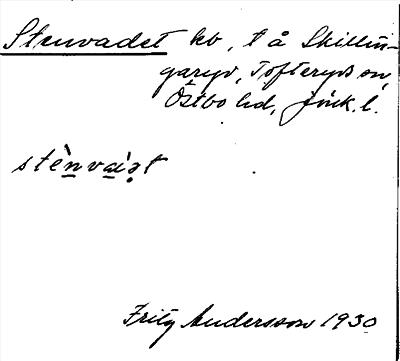 Stenvadet hb, t å Skillin-
garyd, Tofteryds sn,
Östbo hd, Jönk. l.
stènvaìət
Fritz Andersson 1930